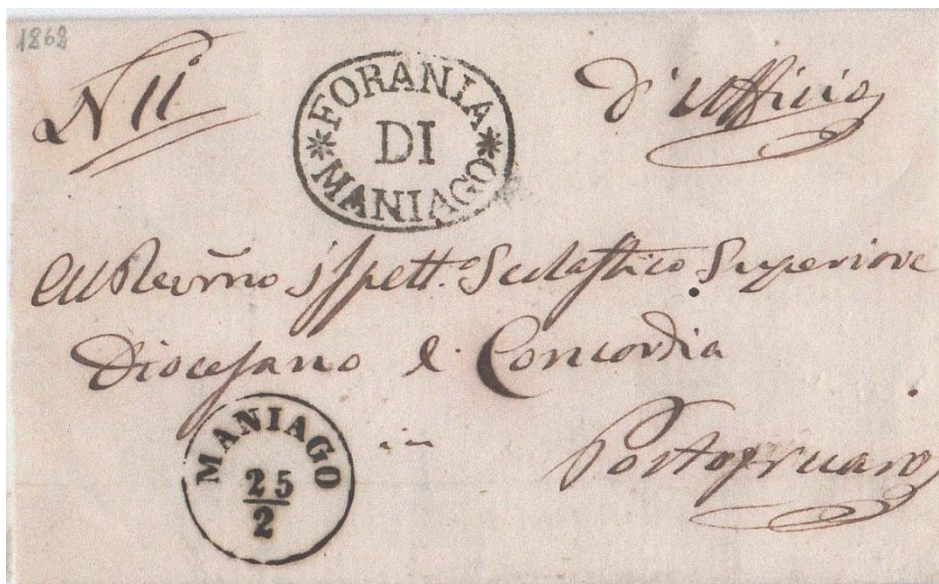 1862
N 11
FORANIA
DI
MANIAGO
d'Ufficio
Al Revm̃o Ispett.e Scolastico Superiore
Diocesano di Concordia
in
Portogruaro
MANIAGO
25
2